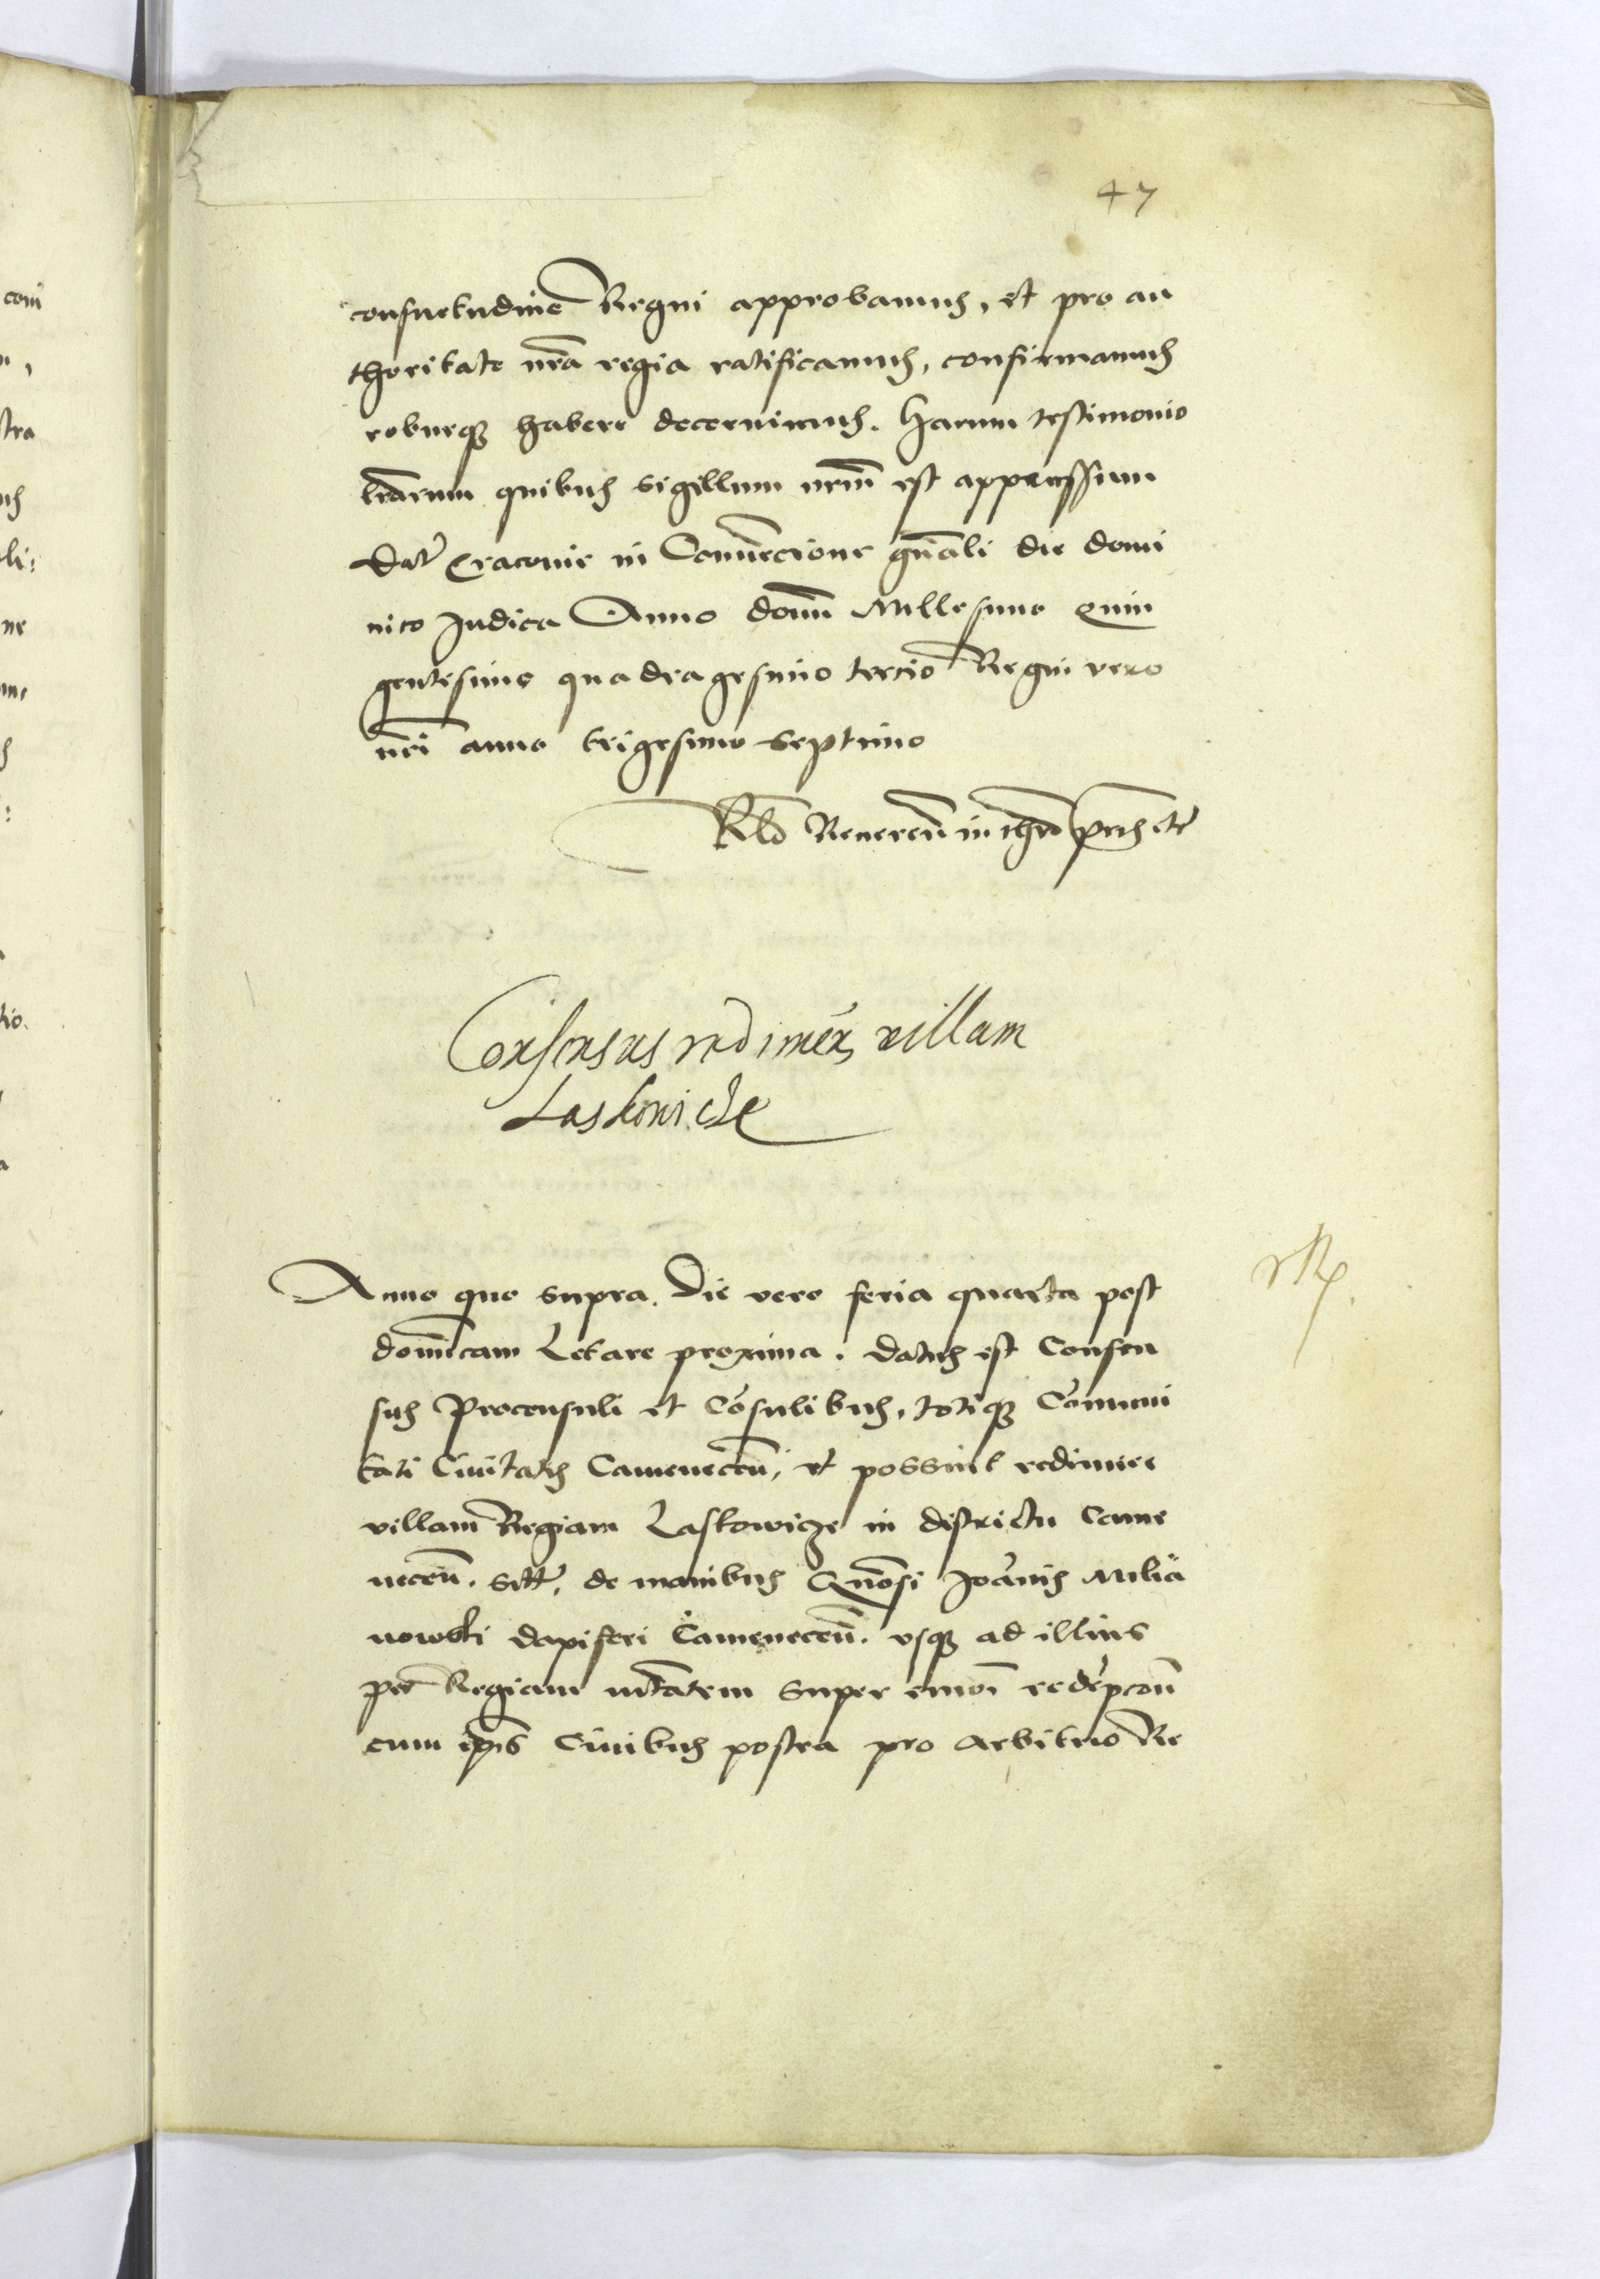 47
consuetudine Regni approbamus, et pro au
thoritate nr̃a regia ratificamus, confirmamus
roburq3 habere decernimus. Harum testimonio
lr̃arum quibus sigillum nrm̃ est appenssum
Dat̃ Cracovie in Conventione gnãli die domi
nico Judica Anno domĩ Millesimo Quin
gentesimo quadragesimo tercio Regni vero
nr̃i anno trigesimo septimo
Rlõ Reveren̄ in chr̃o pr̃is etc̃
Consensus redimen villam
Laskovicze
Anno quo supra. Die vero feria quarta post
dominicam Letare proxima. datus est Consen
sus Proconsuli et Cõsulibus, totiq3 Cõmuni
tati Civitatis Camenecen̄, ut possint redimere
villam Regiam Laskowicze in districtu Came
necen̄. sitt̃, de manibus Gnõsi Joãnis Miliä
nowski dapiferi Camenecen̄. usq3 ad illius
per Regiam mtatem super emõi redẽpcon̄
cum ip̃is Civibus postea pro arbitrio Re